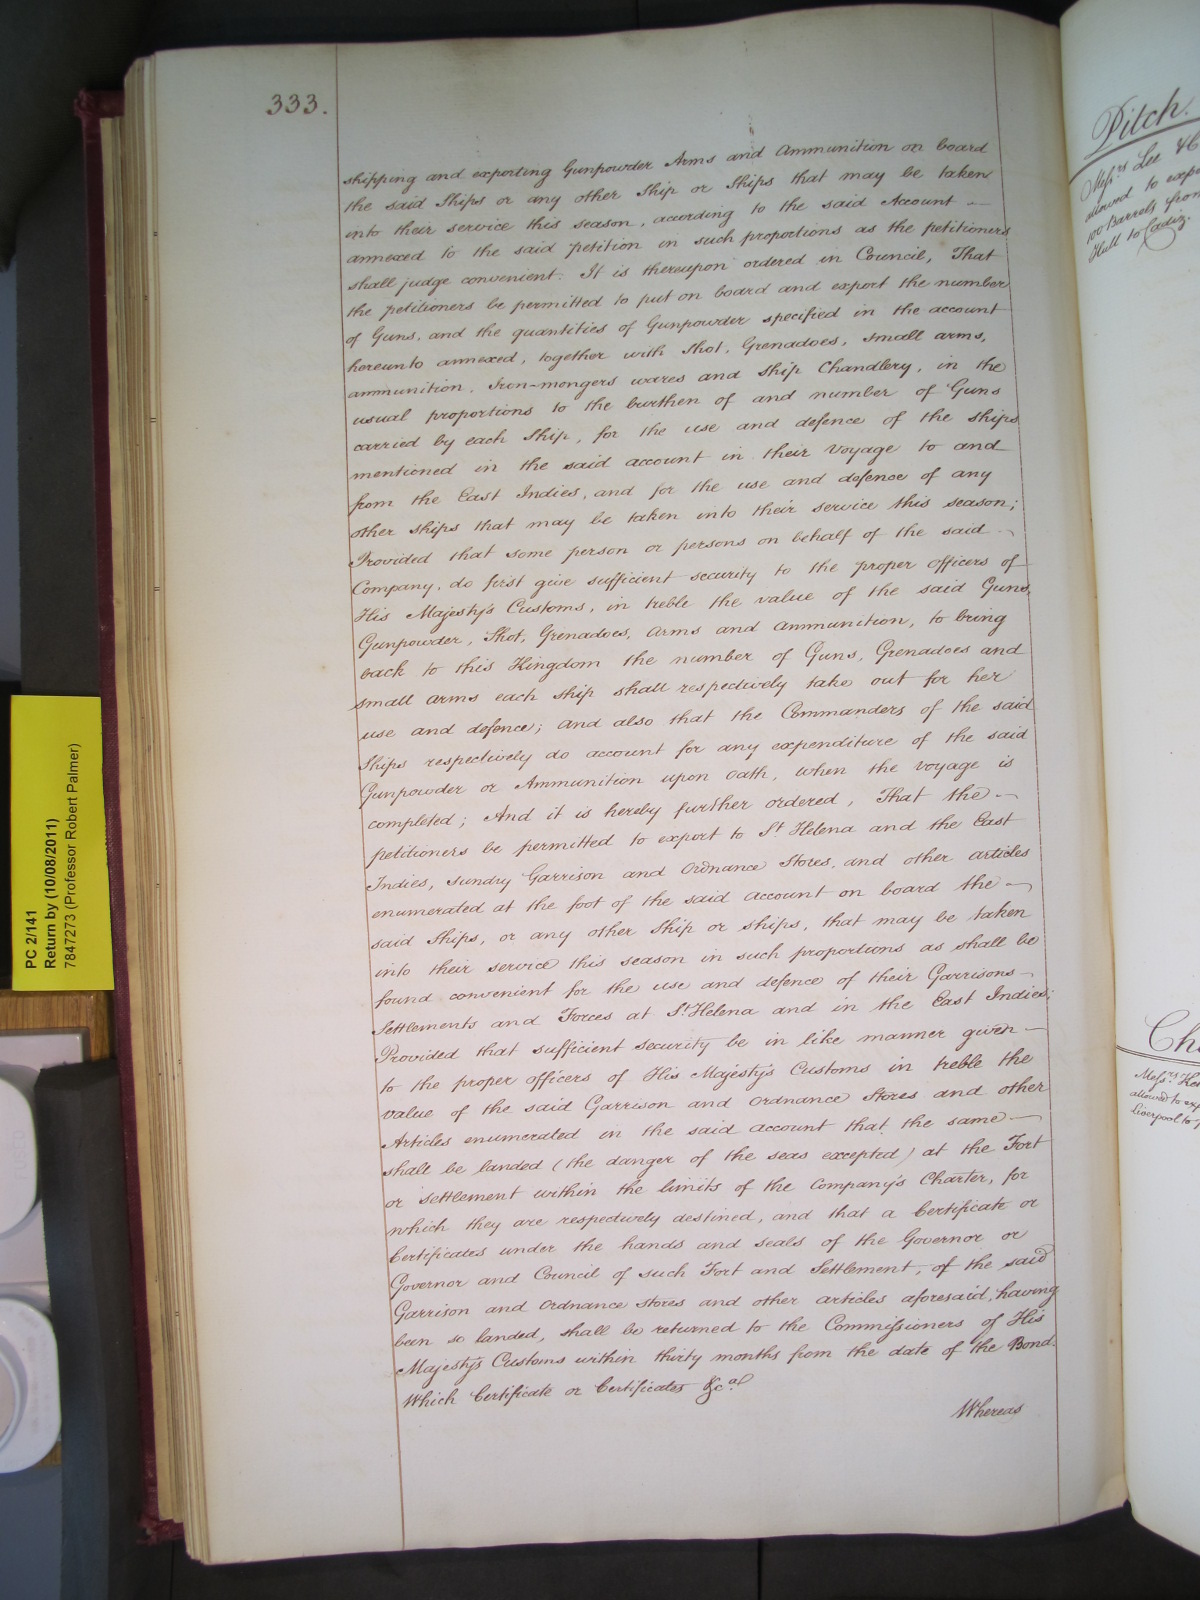 333.
shipping and exporting Gunpowder Arms and Ammunition on board
the said Ships or any other Ship or Ships that may be taken
into their service this season, according to the said Account
annexed to the said petition in such proportions as the petitioners
shall judge convenient. It is thereupon ordered in Council, That
the petitioners be permitted to put on board and export the number
of Guns, and the quantities of Gunpowder specified in the account
hereunto annexed, together with Shot, Grenadoes, small arms,
ammunition, Iron-mongers wares and ship Chandlery, in the
usual proportions to the burthen of and number of Guns
carried by each Ship, for the use and defence of the ships
mentioned in the said account in their voyage to and
from the East Indies, and for the use and defence of any
other ships that may be taken into their service this season;
Provided that some person or persons on behalf of the said
Company, do first give sufficient security to the proper officers of
His Majesty's Customs, in treble the value of the said Guns,
Gunpowder, Shot, Grenadoes, Arms and Ammunition, to bring
back to this Kingdom the number of Guns, Grenadoes and
small arms each ship shall respectively take out for her
use and defence; and also that the Commanders of the said
Ships respectively do account for any expenditure of the said
Gunpowder or Ammunition upon oath, when the voyage is
completed; And it is hereby further ordered, That the
petitioners be permitted to export to St. Helena and the East
Indies, sundry Garrison and Ordnance Stores, and other articles
enumerated at the foot of the said account on board the
said Ships, or any other Ship or ships, that may be taken
into their service this season in such proportions as shall be
found convenient for the use and defence of their Garrisons
Settlements and Forces at St. Helena and in the East Indies;
Provided that sufficient security be in like manner given
to the proper officers of His Majesty's Customs in treble the
value of the said Garrison and Ordnance Stores and other
Articles enumerated in the said account that the same
shall be landed (the danger of the seas excepted) at the Fort
or settlement within the limits of the Company's Charter, for
which they are respectively destined, and that a Certificate or
Certificates under the hands and seals of the Governor or
Governor and Council of such Fort and Settlement, of the said
Garrison and Ordnance stores and other articles aforesaid, having
been so landed, shall be returned to the Commissioners of His
Majesty's Customs within thirty months from the date of the Bond.
Which Certificate or Certificates &ca.
Whereas
Pitch.
Messrs. Lee &
allowed to
100 Barrels from
Hull to Cadiz.
Messrs.
allowed to
Liverpool to
PC 2/141
Return by (10/08/2011)
7847273 (Professor Robert Palmer)